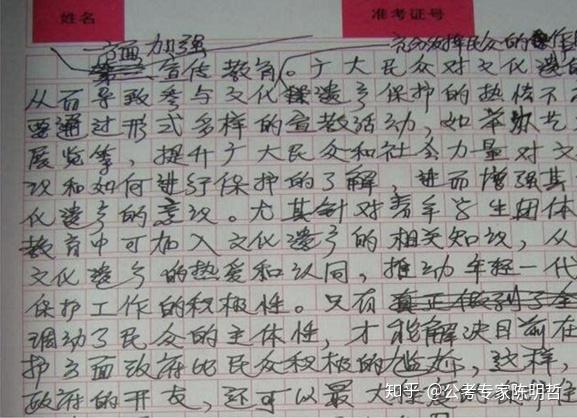 姓名
准考证号
一方面加强
充分发挥民众的作用
宣传教育。广大民众对文化遗的
从而导致参与文化遗亏保护的热情不
要通过形式多样的宣教活动,如举办艺
展览等,提升广大民众和社会力量对文
议和如何进行保护的了解,进而增强其
化遗亏的意议。尤其针对青年学生团体
教育中可加入文化遗亏的相关知议,从
文化遗亏的热爱和认同,推动年轻一代
保护工作的积极性。只有真正做到了全
调动了民众的主体性,才能解决目前在
护方面政府比民众积极的尴尬,这样,
政府的开支,还可以最大
知乎 @公考专家陈明哲